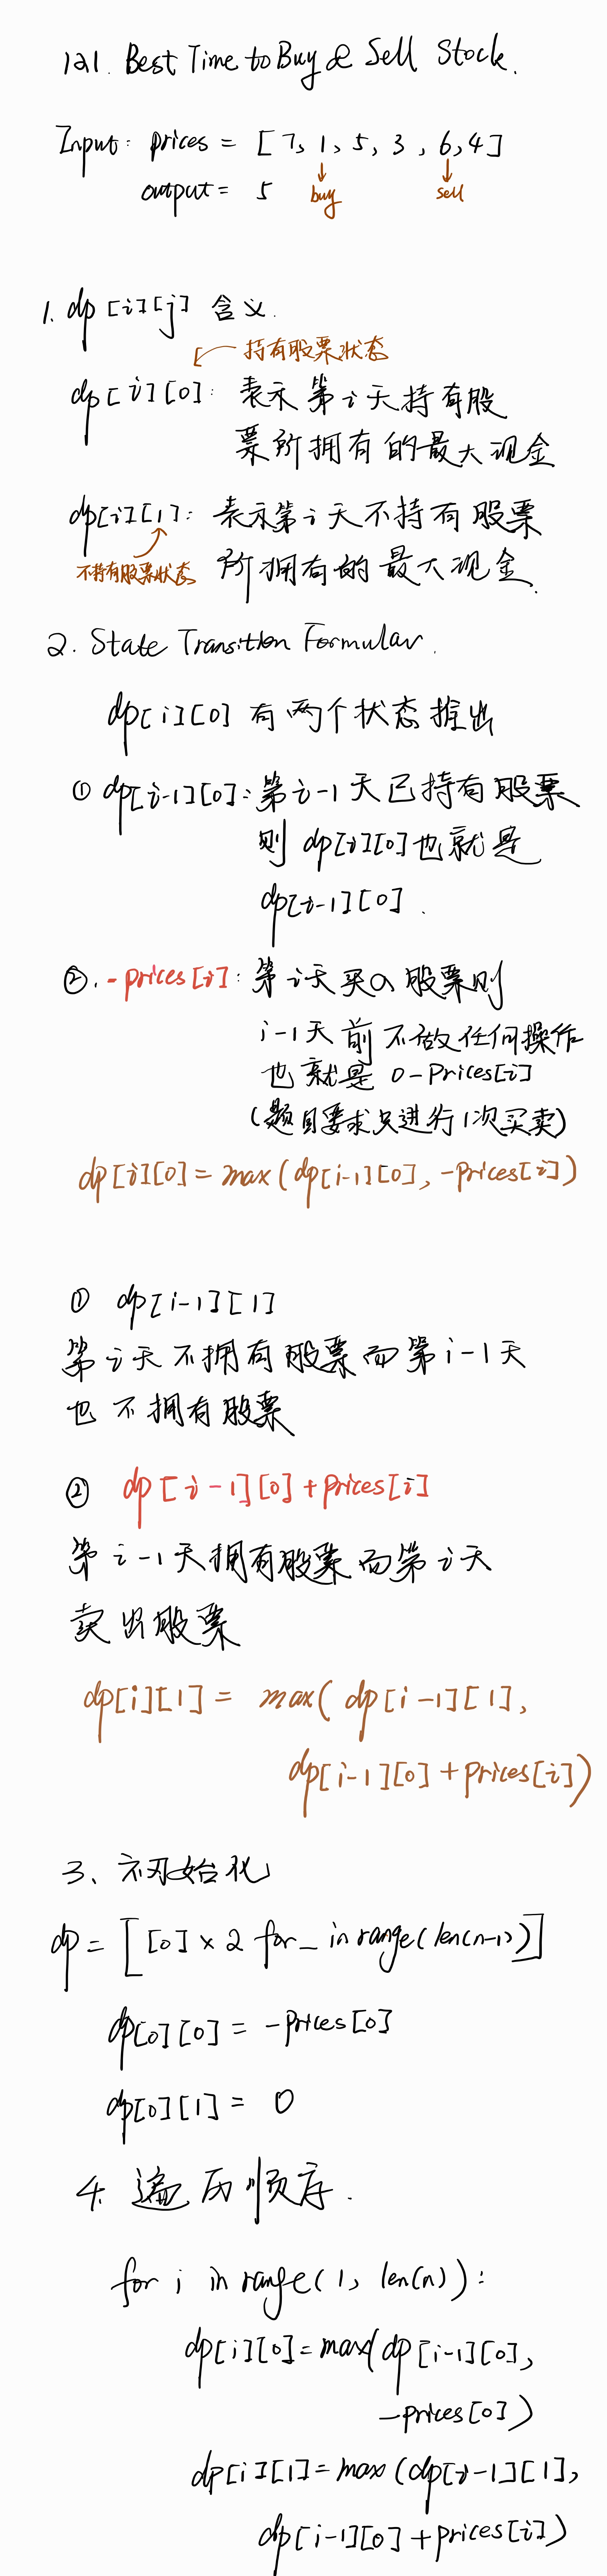 121. Best Time to Buy & Sell Stock.
Input: prices = [7, 1, 5, 3, 6, 4]
output = 5
buy
sell
1. dp[i][j] 含义.
持有股票状态
dp[i][0]: 表示第i天持有股
票所拥有的最大现金
dp[i][1]: 表示第i天不持有股票
不持有股票状态
所拥有的最大现金.
2. State Transition Formular.
dp[i][0] 有两个状态推出
① dp[i-1][0]: 第i-1天已持有股票
则 dp[i][0]也就是
dp[i-1][0].
②. -prices[i]: 第i天买入股票则
i-1天前不做任何操作
也就是 0-Prices[i]
(题目要求只进行1次买卖)
dp[i][0] = max(dp[i-1][0], -prices[i])
① dp[i-1][1]
第i天不拥有股票而第i-1天
也不拥有股票
② dp[i-1][0]+prices[i]
第i-1天拥有股票而第i天
卖出股票
dp[i][1] = max( dp[i-1][1],
dp[i-1][0]+prices[i])
3、初始化
dp = [[0] × 2 for _ in range(len(n-1))]
dp[0][0] = -prices[0]
dp[0][1] = 0
4. 遍历顺序.
for i in range(1, len(n)):
dp[i][0]=max(dp[i-1][0],
-prices[0])
dp[i][1]=max(dp[i-1][1],
dp[i-1][0]+prices[i])